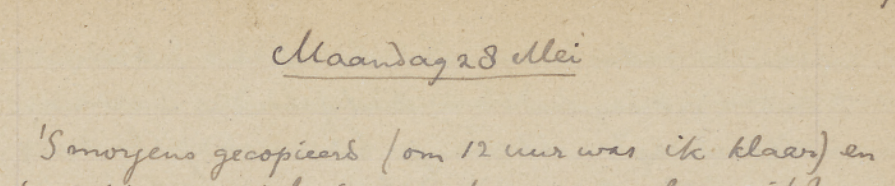 Maandag 28 Mei
'S morgens gecopieerd (om 12 uur was ik klaar) en